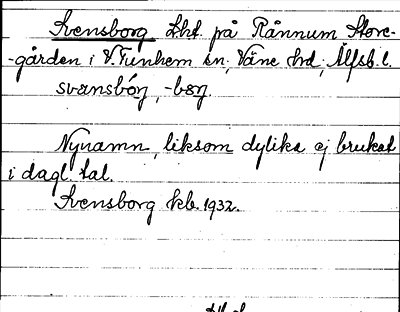 Svensborg Lht. på Rånnum Store-
-gården i V. Tunhem sn, Väne hd, Älfsb. l.
svænsbón, -bøn.
Nynamn, liksom dylika ej brukat
i dagl. tal.
Svensborg kb. 1932.